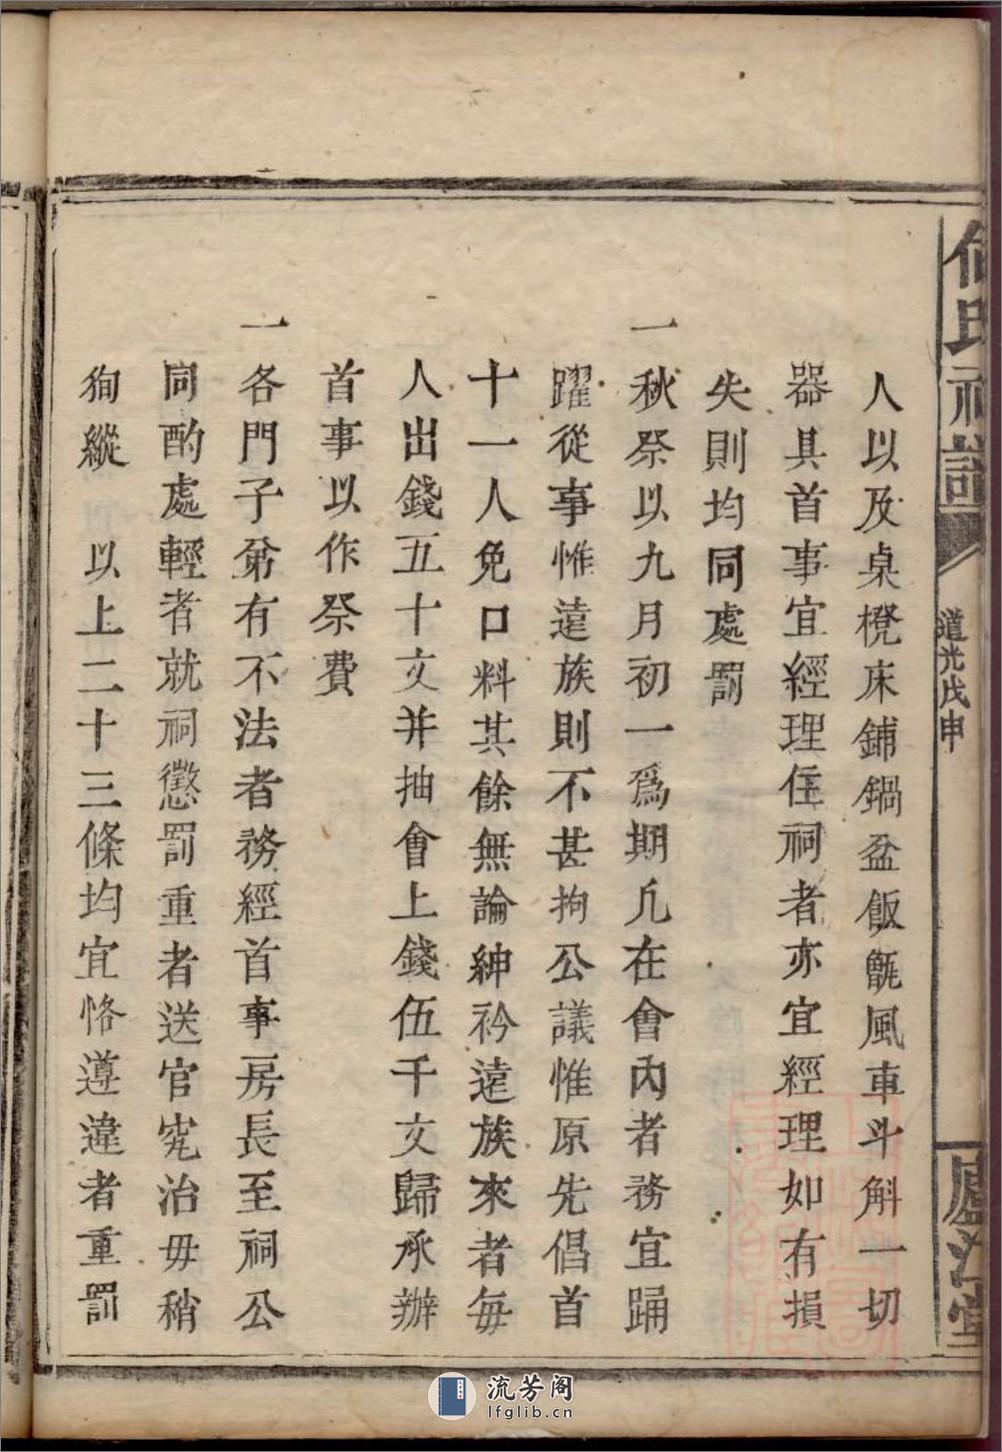 何氏族譜
道光戊申
廬江堂
人以及桌櫈床鋪鍋盆飯甑風車斗斛一切
器具首事宜經理住祠者亦宜經理如有損
失則均同處罰
一秋祭以九月初一爲期凡在會內者務宜踊
躍從事惟遠族則不甚拘公議惟原先倡首
十一人免口料其餘無論紳衿遠族來者每
人出錢五十文并抽會上錢伍千文歸承辦
首事以作祭費
一各門子弟有不法者務經首事房長至祠公
同酌處輕者就祠懲罰重者送官究治毋稍
狥縱 以上二十三條均宜恪遵違者重罰
流芳阁
lfglib.cn